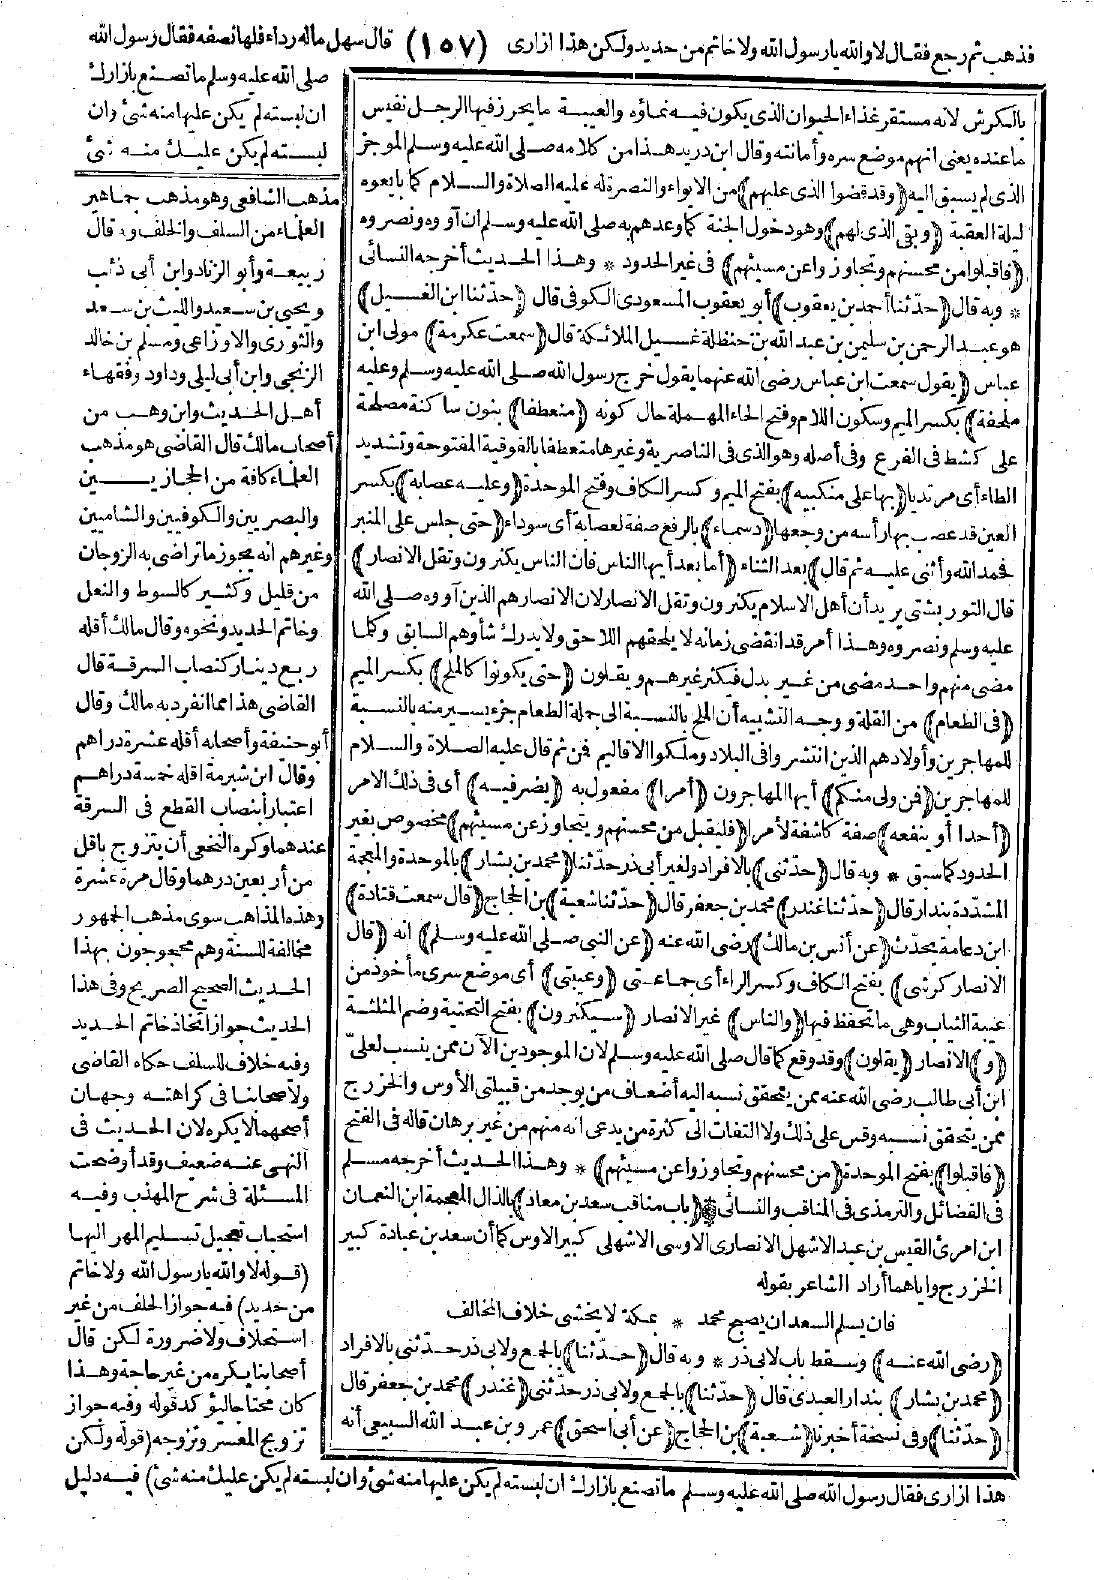 فذهب ثم رجع فقال لا والله يارسول الله ولا خاتم من حديد ولكن هذا ازارى (١٥٧) قال سهل ماله رداء فلها نصفه فقال رسول الله
صلى الله عليه وسلم ما تصنع بازارك
ان لبسته لم يكن عليها منه شئ وان
لبسته لم يكن عليك منه شئ
بالكرش لانه مستقر غذاء الحيوان الذى يكون فيه نماؤه والعيبة ما يحرز فيها الرجل نفيس
ما عنده يعنى انهم موضع سره وأمانته وقال ابن دريد هذا من كلامه صلى الله عليه وسلم الموجز
الذى لم يسبق اليه (وقد قضوا الذى عليهم) من الايواء والنصرة له عليه الصلاة والسلام كما بايعوه
ليلة العقبة (وبقى الذى لهم) وهو دخول الجنة كما وعدهم به صلى الله عليه وسلم ان آووه ونصروه
(فاقبلوا من محسنهم وتجاوزوا عن مسيئهم) فى غير الحدود * وهذا الحديث أخرجه النسائى
* وبه قال (حدثنا أحمد بن يعقوب) أبو يعقوب المسعودى الكوفى قال (حدثنا ابن الغسيل)
هو عبد الرحمن بن سليمن بن عبد الله بن حنظلة غسيل الملائكة قال (سمعت عكرمة) مولى ابن
عباس (يقول سمعت ابن عباس رضى الله عنهما يقول خرج رسول الله صلى الله عليه وسلم وعليه
ملحفة) بكسر الميم وسكون اللام وفتح الحاء المهملة حال كونه (منعطفا) بنون ساكنة مصلحة
على كشط فى الفرع وفى أصله وهو الذى فى الناصرية وغيرها متعطفا بالفوقية المفتوحة وتشديد
الطاء أى مرتديا (بها على منكبيه) بفتح الميم وكسر الكاف وفتح الموحدة (وعليه عصابة) بكسر
العين قد عصب بها رأسه من وجعها (دسماء) بالرفع صفة لعصابة أى سوداء (حتى جلس على المنبر
فحمد الله وأثنى عليه ثم قال) بعد الثناء (أما بعد أيها الناس فان الناس يكثرون وتقل الانصار)
قال التوربشتى يريد أن أهل الاسلام يكثرون وتقل الانصار لان الانصار هم الذين آووه صلى الله
عليه وسلم ونصروه وهذا أمر قد انقضى زمانه لا يلحقهم اللاحق ولا يدرك شأوهم السابق وكلما
مضى منهم واحد مضى من غير بدل فيكثر غيرهم ويقلون (حتى يكونوا كالملح) بكسر الميم
(فى الطعام) من القلة ووجه التشبيه أن الملح بالنسبة الى جملة الطعام جزء يسير منه بالنسبة
للمهاجرين وأولادهم الذين انتشروا فى البلاد وملكوا الاقاليم فمن ثم قال عليه الصلاة والسلام
للمهاجرين (فمن ولى منكم) أيها المهاجرون (أمرا) مفعول به (يضر فيه) أى فى ذلك الامر
(أحدا أو ينفعه) صفة كاشفة لأمرا (فليقبل من محسنهم ويتجاوز عن مسيئهم) مخصوص بغير
الحدود كما سبق * وبه قال (حدثنى) بالافراد ولغير أبى ذر حدثنا (محمد بن بشار) بالموحدة والمعجمة
المشددة بندار قال (حدثنا غندر) محمد بن جعفر قال (حدثنا شعبة) بن الحجاج (قال سمعت قتادة)
ابن دعامة يحدث (عن أنس بن مالك) رضى الله عنه (عن النبى صلى الله عليه وسلم) انه (قال
الانصار كرشى) بفتح الكاف وكسر الراء أى جماعتى (وعيبتى) أى موضع سرى مأخوذ من
عيبة الثياب وهى ما تحفظ فيها (والناس) غير الانصار (سيكثرون) بفتح التحتية وضم المثلثة
(و) الانصار (يقلون) وقد وقع كما قال صلى الله عليه وسلم لان الموجودين الآن ممن ينسب لعلى
ابن أبى طالب رضى الله عنه ممن يتحقق نسبه اليه أضعاف من يوجد من قبيلتى الأوس والخزرج
ممن يتحقق نسبه وقس على ذلك ولا التفات الى كثرة من يدعى انه منهم من غير برهان قاله فى الفتح
(فاقبلوا) بفتح الموحدة (من محسنهم وتجاوزوا عن مسيئهم) * وهذا الحديث أخرجه مسلم
فى الفضائل والترمذى فى المناقب والنسائى * (باب مناقب سعد بن معاذ) بالذال المعجمة ابن النعمان
ابن امرئ القيس بن عبد الاشهل الانصارى الاوسى الاشهلى كبير الاوس كما أن سعد بن عبادة كبير
الخزرج واياهما أراد الشاعر بقوله
فان يسلم السعدان يصبح محمد * بمكة لا يخشى خلاف المخالف
(رضى الله عنه) وسقط باب لابى ذر * وبه قال (حدثنا) بالجمع ولابى ذر حدثنى بالافراد
(محمد بن بشار) بندار العبدى قال (حدثنا) بالجمع ولابى ذر حدثنى (غندر) محمد بن جعفر قال
(حدثنا) وفى نسخة أخبرنا (شعبة) بن الحجاج (عن أبى اسحق) عمرو بن عبد الله السبيعى أنه
مذهب الشافعى وهو مذهب جماهير
العلماء من السلف والخلف وبه قال
ربيعة وأبو الزناد وابن أبى ذئب
ويحيى بن سعيد والليث بن سعد
والثورى والاوزاعى ومسلم بن خالد
الزنجى وابن أبى ليلى وداود وفقهاء
أهل الحديث وابن وهب من
أصحاب مالك قال القاضى هو مذهب
العلماء كافة من الحجازيين
والبصريين والكوفيين والشاميين
وغيرهم انه يجوز ما تراضى به الزوجان
من قليل وكثير كالسوط والنعل
وخاتم الحديد ونحوه وقال مالك أقله
ربع دينار كنصاب السرقة قال
القاضى هذا مما انفرد به مالك وقال
أبو حنيفة وأصحابه أقله عشرة دراهم
وقال ابن شبرمة اقله خمسة دراهم
اعتبارا بنصاب القطع فى السرقة
عندهما وكره النخعى أن يتزوج باقل
من أربعين درهما وقال مرة عشرة
وهذه المذاهب سوى مذهب الجمهور
مخالفة للسنة وهم محجوجون بهذا
الحديث الصحيح الصريح وفى هذا
الحديث جواز اتخاذ خاتم الحديد
وفيه خلاف للسلف حكاه القاضى
ولاصحابنا فى كراهته وجهان
أصحهما لا يكره لان الحديث فى
النهى عنه ضعيف وقد أوضحت
المسئلة فى شرح المهذب وفيه
استحباب تعجيل تسليم المهر اليها
(قوله لا والله يارسول الله ولا خاتم
من حديد) فيه جواز الحلف من غير
استحلاف ولا ضرورة لكن قال
أصحابنا يكره من غير حاجة وهذا
كان محتاجا ليؤكد قوله وفيه جواز
تزويج المعسر وتزوجه (قوله ولكن
هذا ازارى فقال رسول الله صلى الله عليه وسلم ما تصنع بازارك ان لبسته لم يكن عليها منه شئ وان لبسته لم يكن عليك منه شئ) فيه دليل